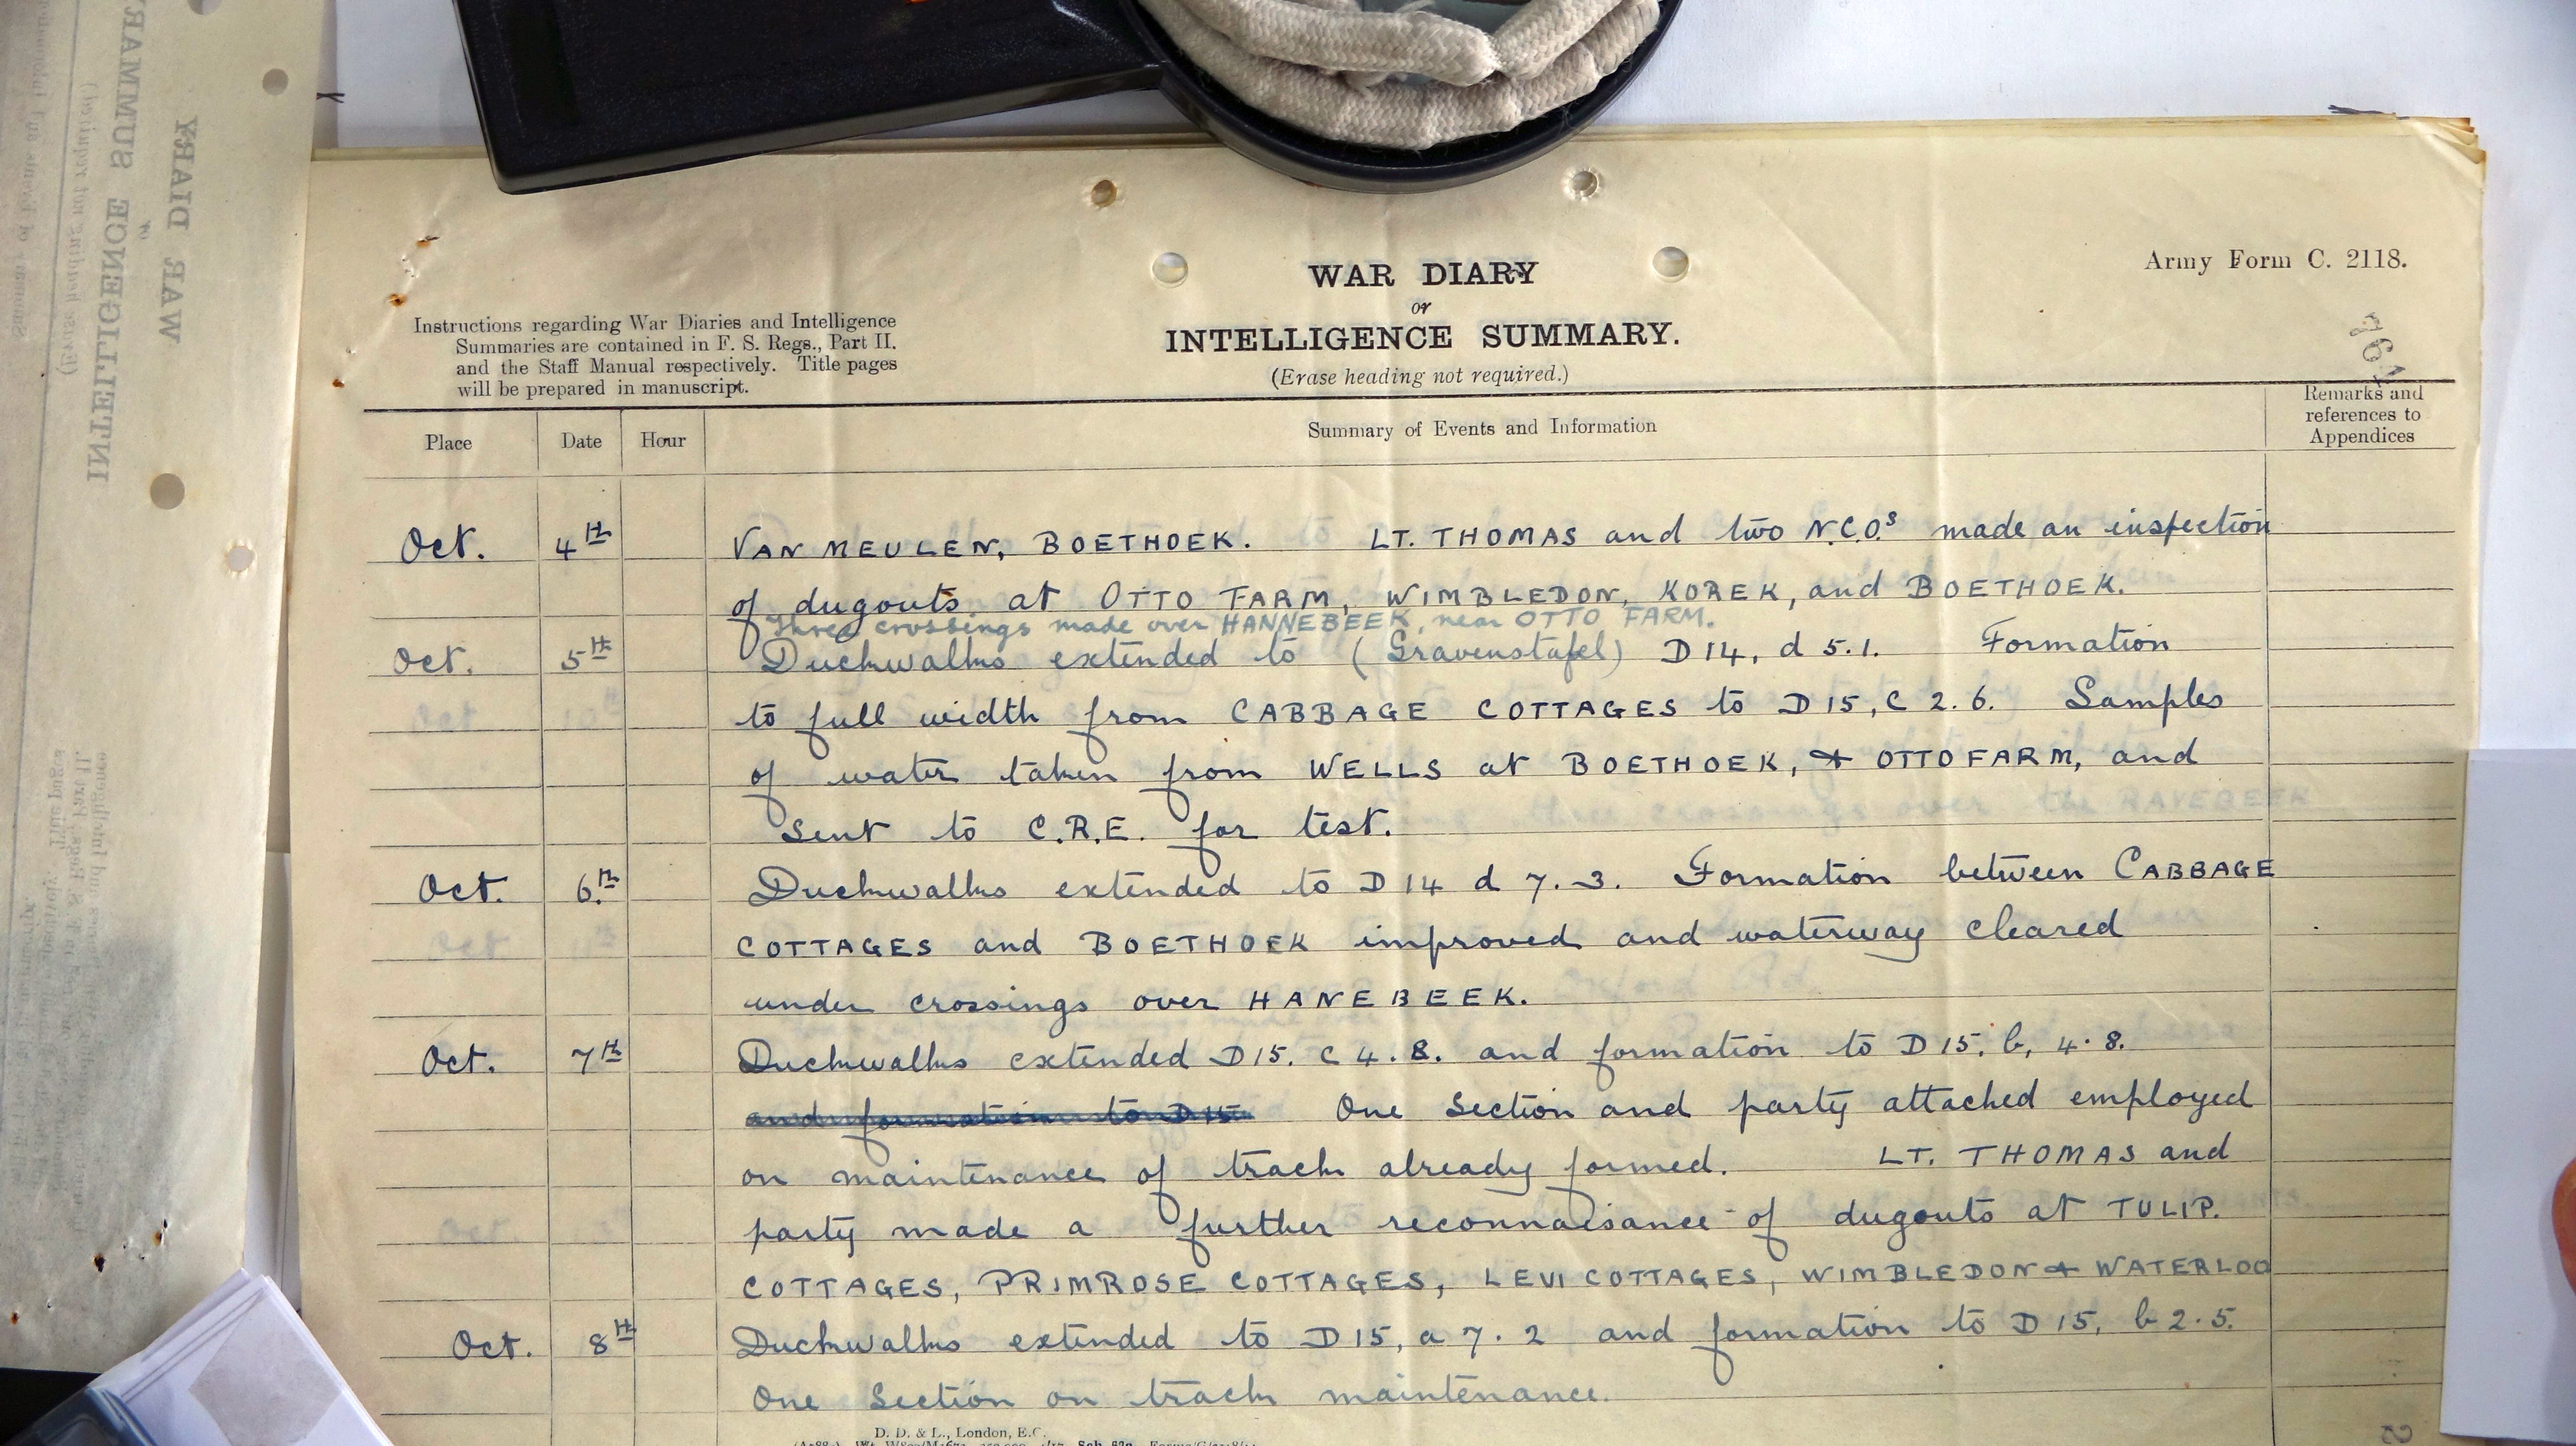 Army Form C. 2118.
WAR DIARY
or
INTELLIGENCE SUMMARY.
(Erase heading not required.)
Instructions regarding War Diaries and Intelligence
Summaries are contained in F. S. Regs., Part II.
and the Staff Manual respectively. Title pages
will be prepared in manuscript.
Place Date Hour Summary of Events and Information Remarks and references to Appendices
Oct. 4th VAN MEULEN, BOETHOEK. LT. THOMAS and two N.C.Os made an inspection
of dugouts at OTTO FARM, WIMBLEDON, KOREK, and BOETHOEK.
Three crossings made over HANNEBEEK, near OTTO FARM.
Oct. 5th Duckwalks extended to (Gravenstafel) D14, d 5.1. Formation
to full width from CABBAGE COTTAGES to D15, C 2.6. Samples
of water taken from WELLS at BOETHOEK, + OTTO FARM, and
sent to C.R.E. for test.
Oct. 6th Duckwalks extended to D14 d 7.3. Formation between CABBAGE
COTTAGES and BOETHOEK improved and waterway cleared
under crossings over HANEBEEK.
Oct. 7th Duckwalks extended D15. C 4.8. and formation to D15. b, 4.8.
and formation to D15 One Section and party attached employed
on maintenance of track already formed. LT. THOMAS and
party made a further reconnaisance of dugouts at TULIP.
COTTAGES, PRIMROSE COTTAGES, LEVI COTTAGES, WIMBLEDON + WATERLOO
Oct. 8th Duckwalks extended to D15, a 7.2 and formation to D15, b 2.5.
One Section on track maintenance.
D. D. & L., London, E.C.